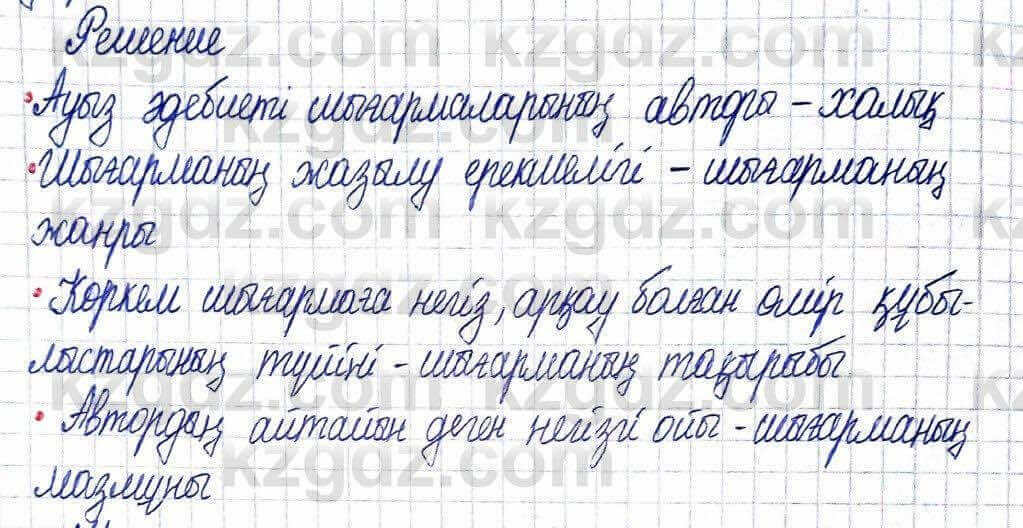 Решение
• Ауыз әдебиеті шығармаларының авторы – халық
• Шығарманың жазылу ерекшелігі – шығарманың
жанры
• Көркем шығармаға негіз, арқау болған өмір құбы-
лыстарының түйіні – шығарманың тақырыбы
• Автордың айтайын деген негізгі ойы – шығарманың
мазмұны